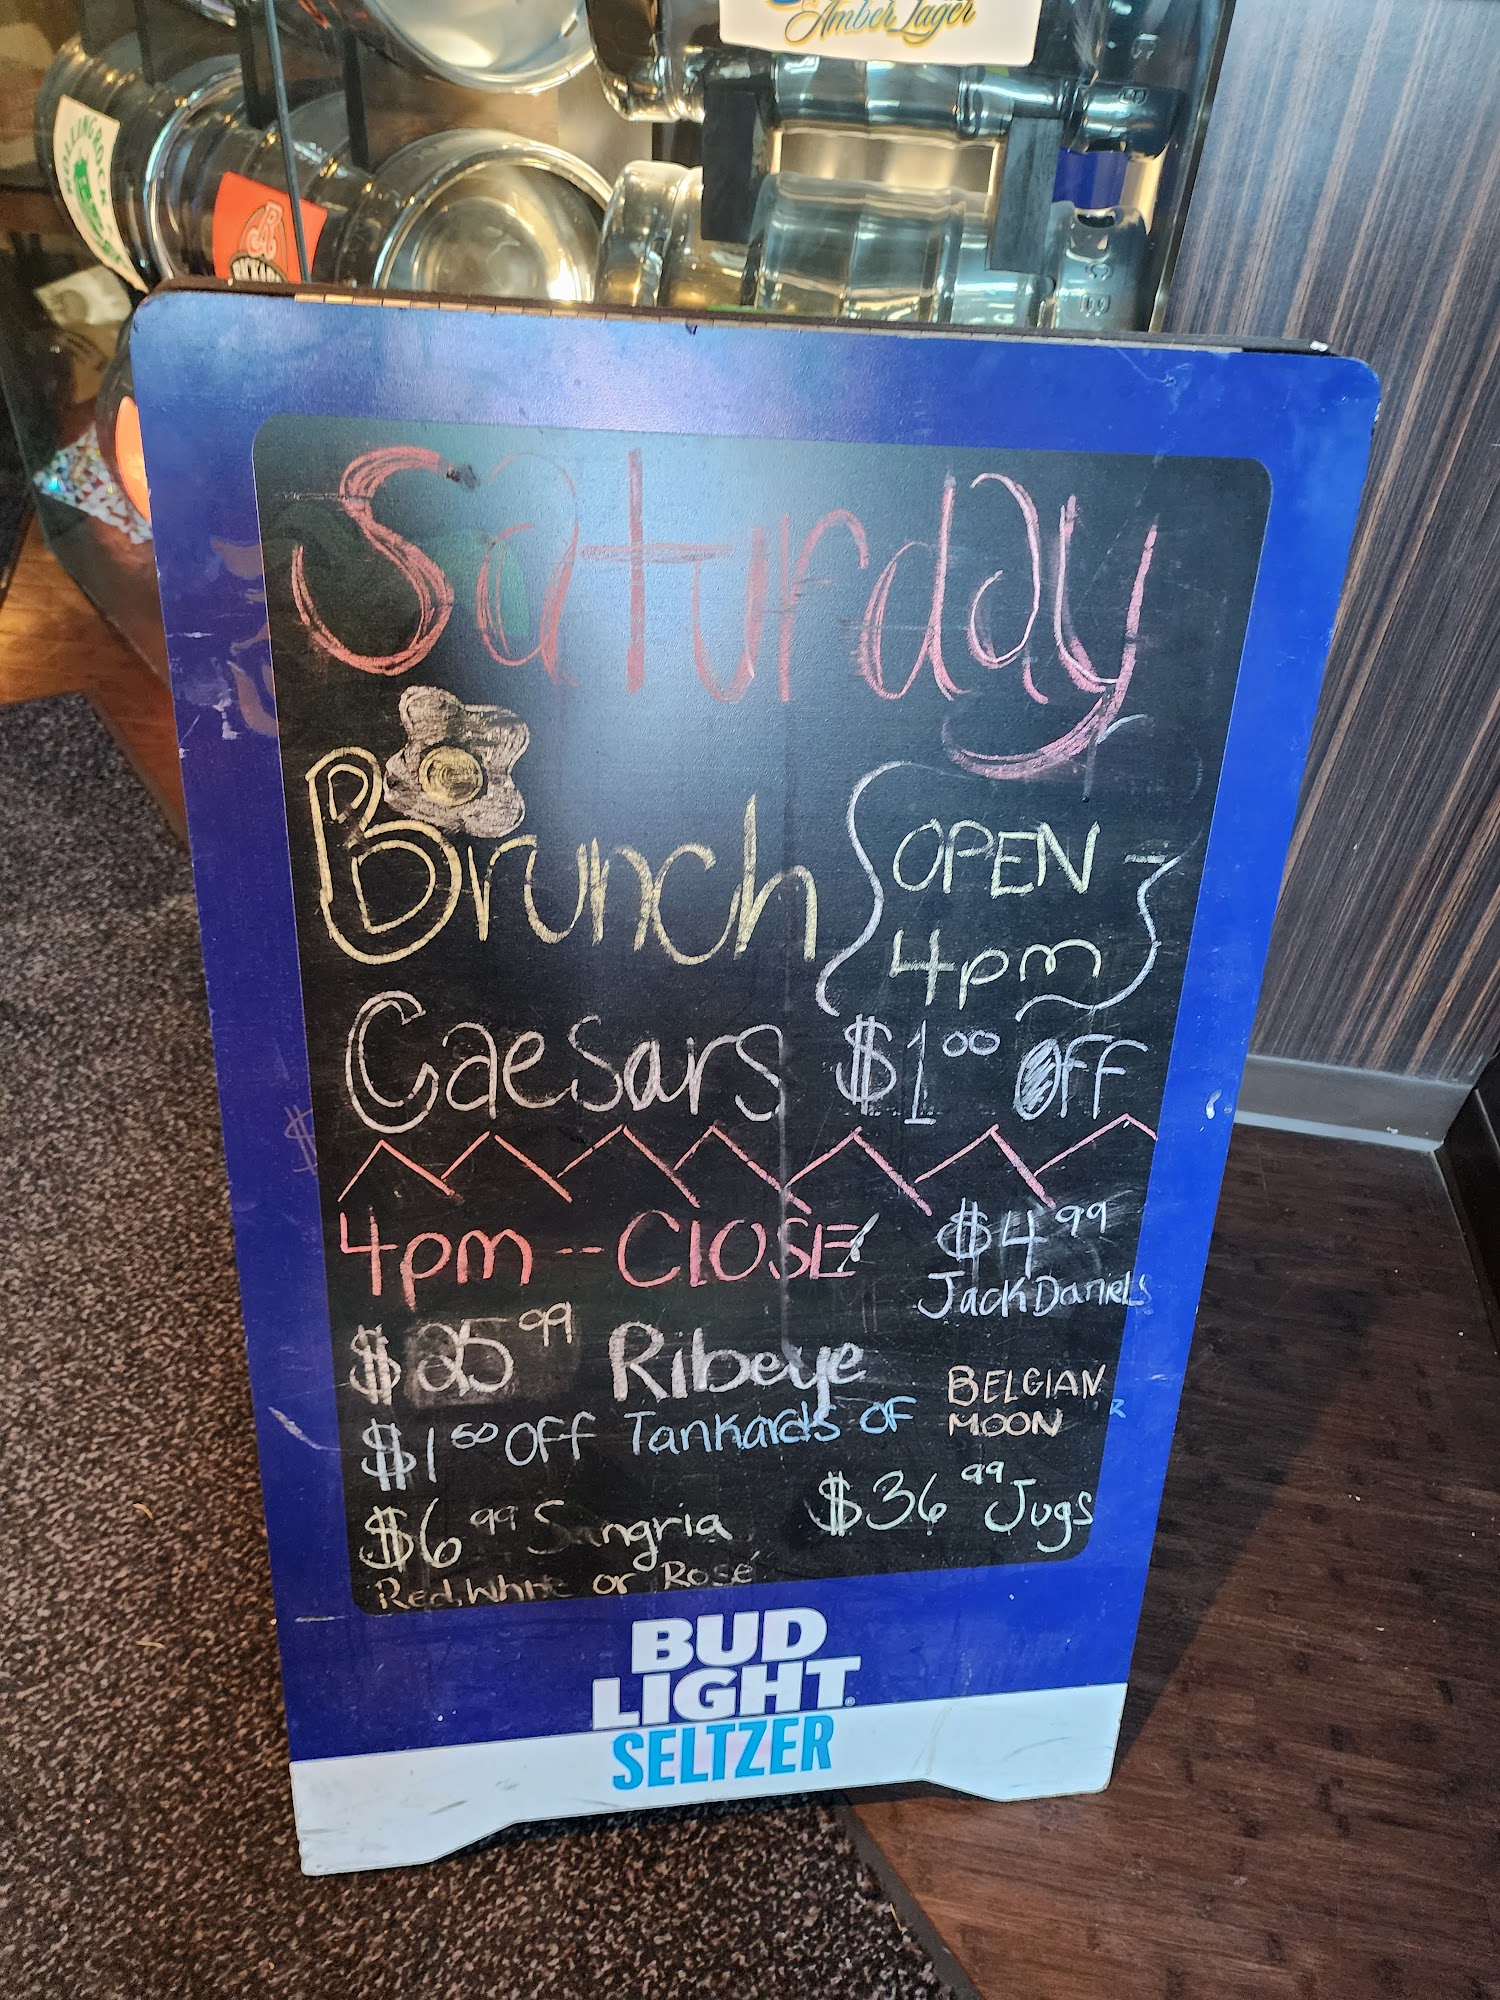 Amber Lager
Saturday
Brunch
OPEN -
4pm
Caesars $1.00 OFF
4pm -- CLOSE
$4.99
Jack Daniels
$25.99 Ribeye
$1.50 OFF Tankards OF BELGIAN
MOON
$6.99 Sangria
$36.99 Jugs
Red, White or Rosé
BUD
LIGHT
SELTZER